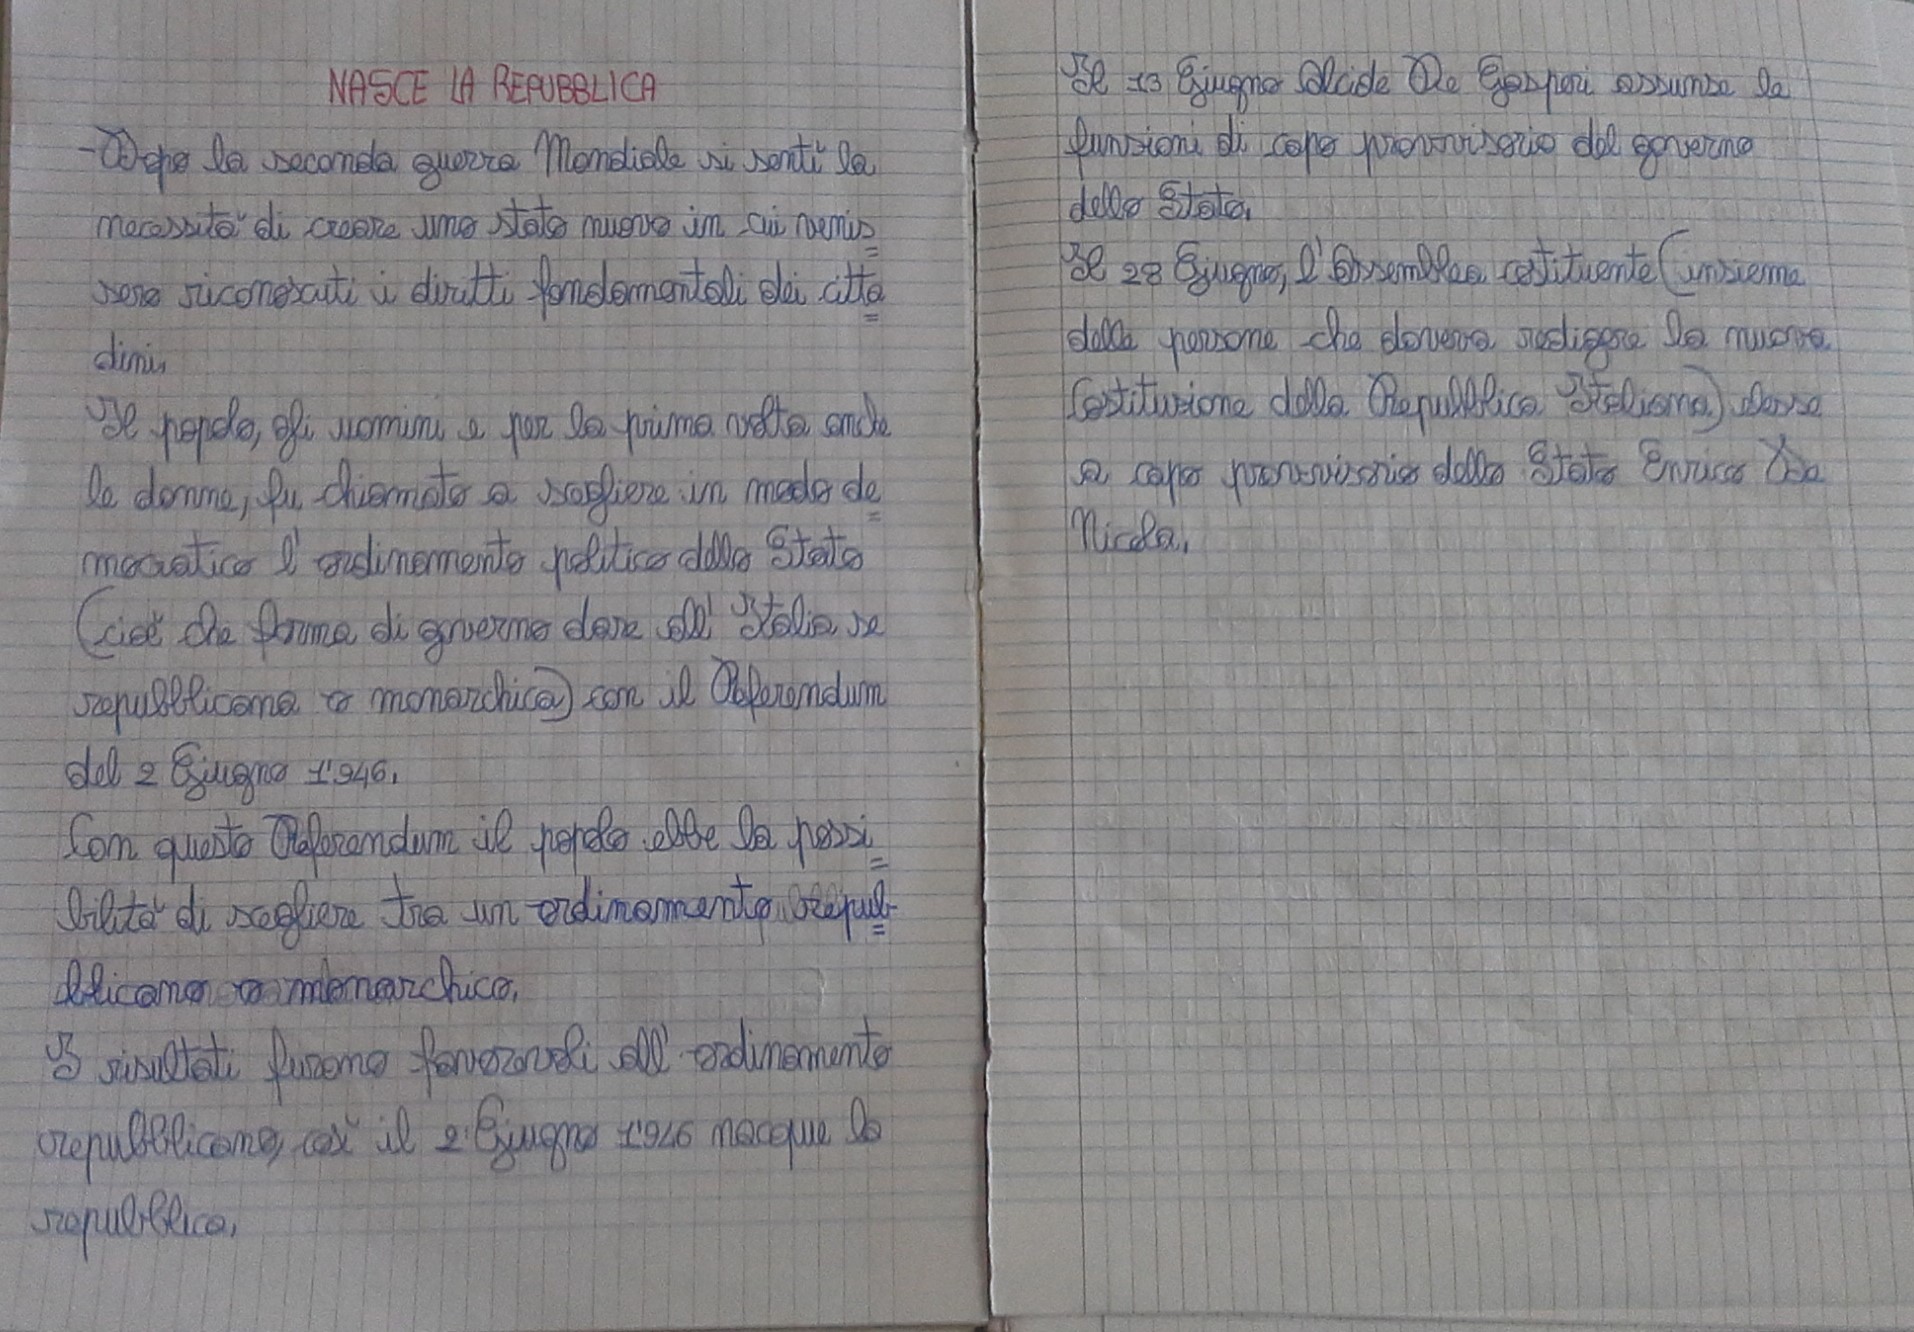 NASCE LA REPUBBLICA
-Dopo la seconda guerra Mondiale si sentì la
necessità di creare uno stato nuovo in cui venis=
sero riconosciuti i diritti fondamentali dei citta=
dini.
Il popolo, gli uomini e per la prima volta anche
le donne, fu chiamato a scegliere in modo de=
mocratico l'ordinamento politico dello Stato
(cioè che forma di governo dare all'Italia se
repubblicana o monarchica) con il Referendum
del 2 Giugno 1946.
Con questo Referendum il popolo ebbe la possi=
bilità di scegliere tra un ordinamento repub=
blicano o monarchico.
I risultati furono favorevoli all'ordinamento
repubblicano, così il 2 Giugno 1946 nacque la
repubblica.
Il 13 Giugno Alcide De Gasperi assunse le
funzioni di capo provvisorio del governo
dello Stato.
Il 28 Giugno, l'Assemblea costituente (insieme
delle persone che doveva redigere la nuova
Costituzione della Repubblica Italiana) elesse
a capo provvisorio dello Stato Enrico De
Nicola.